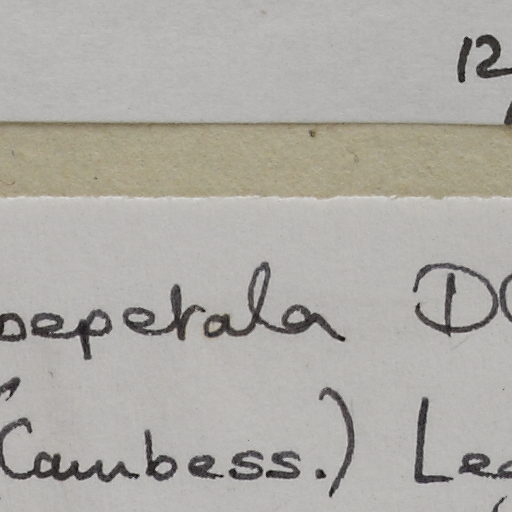 12
oepetala D
(Cambess.) Le